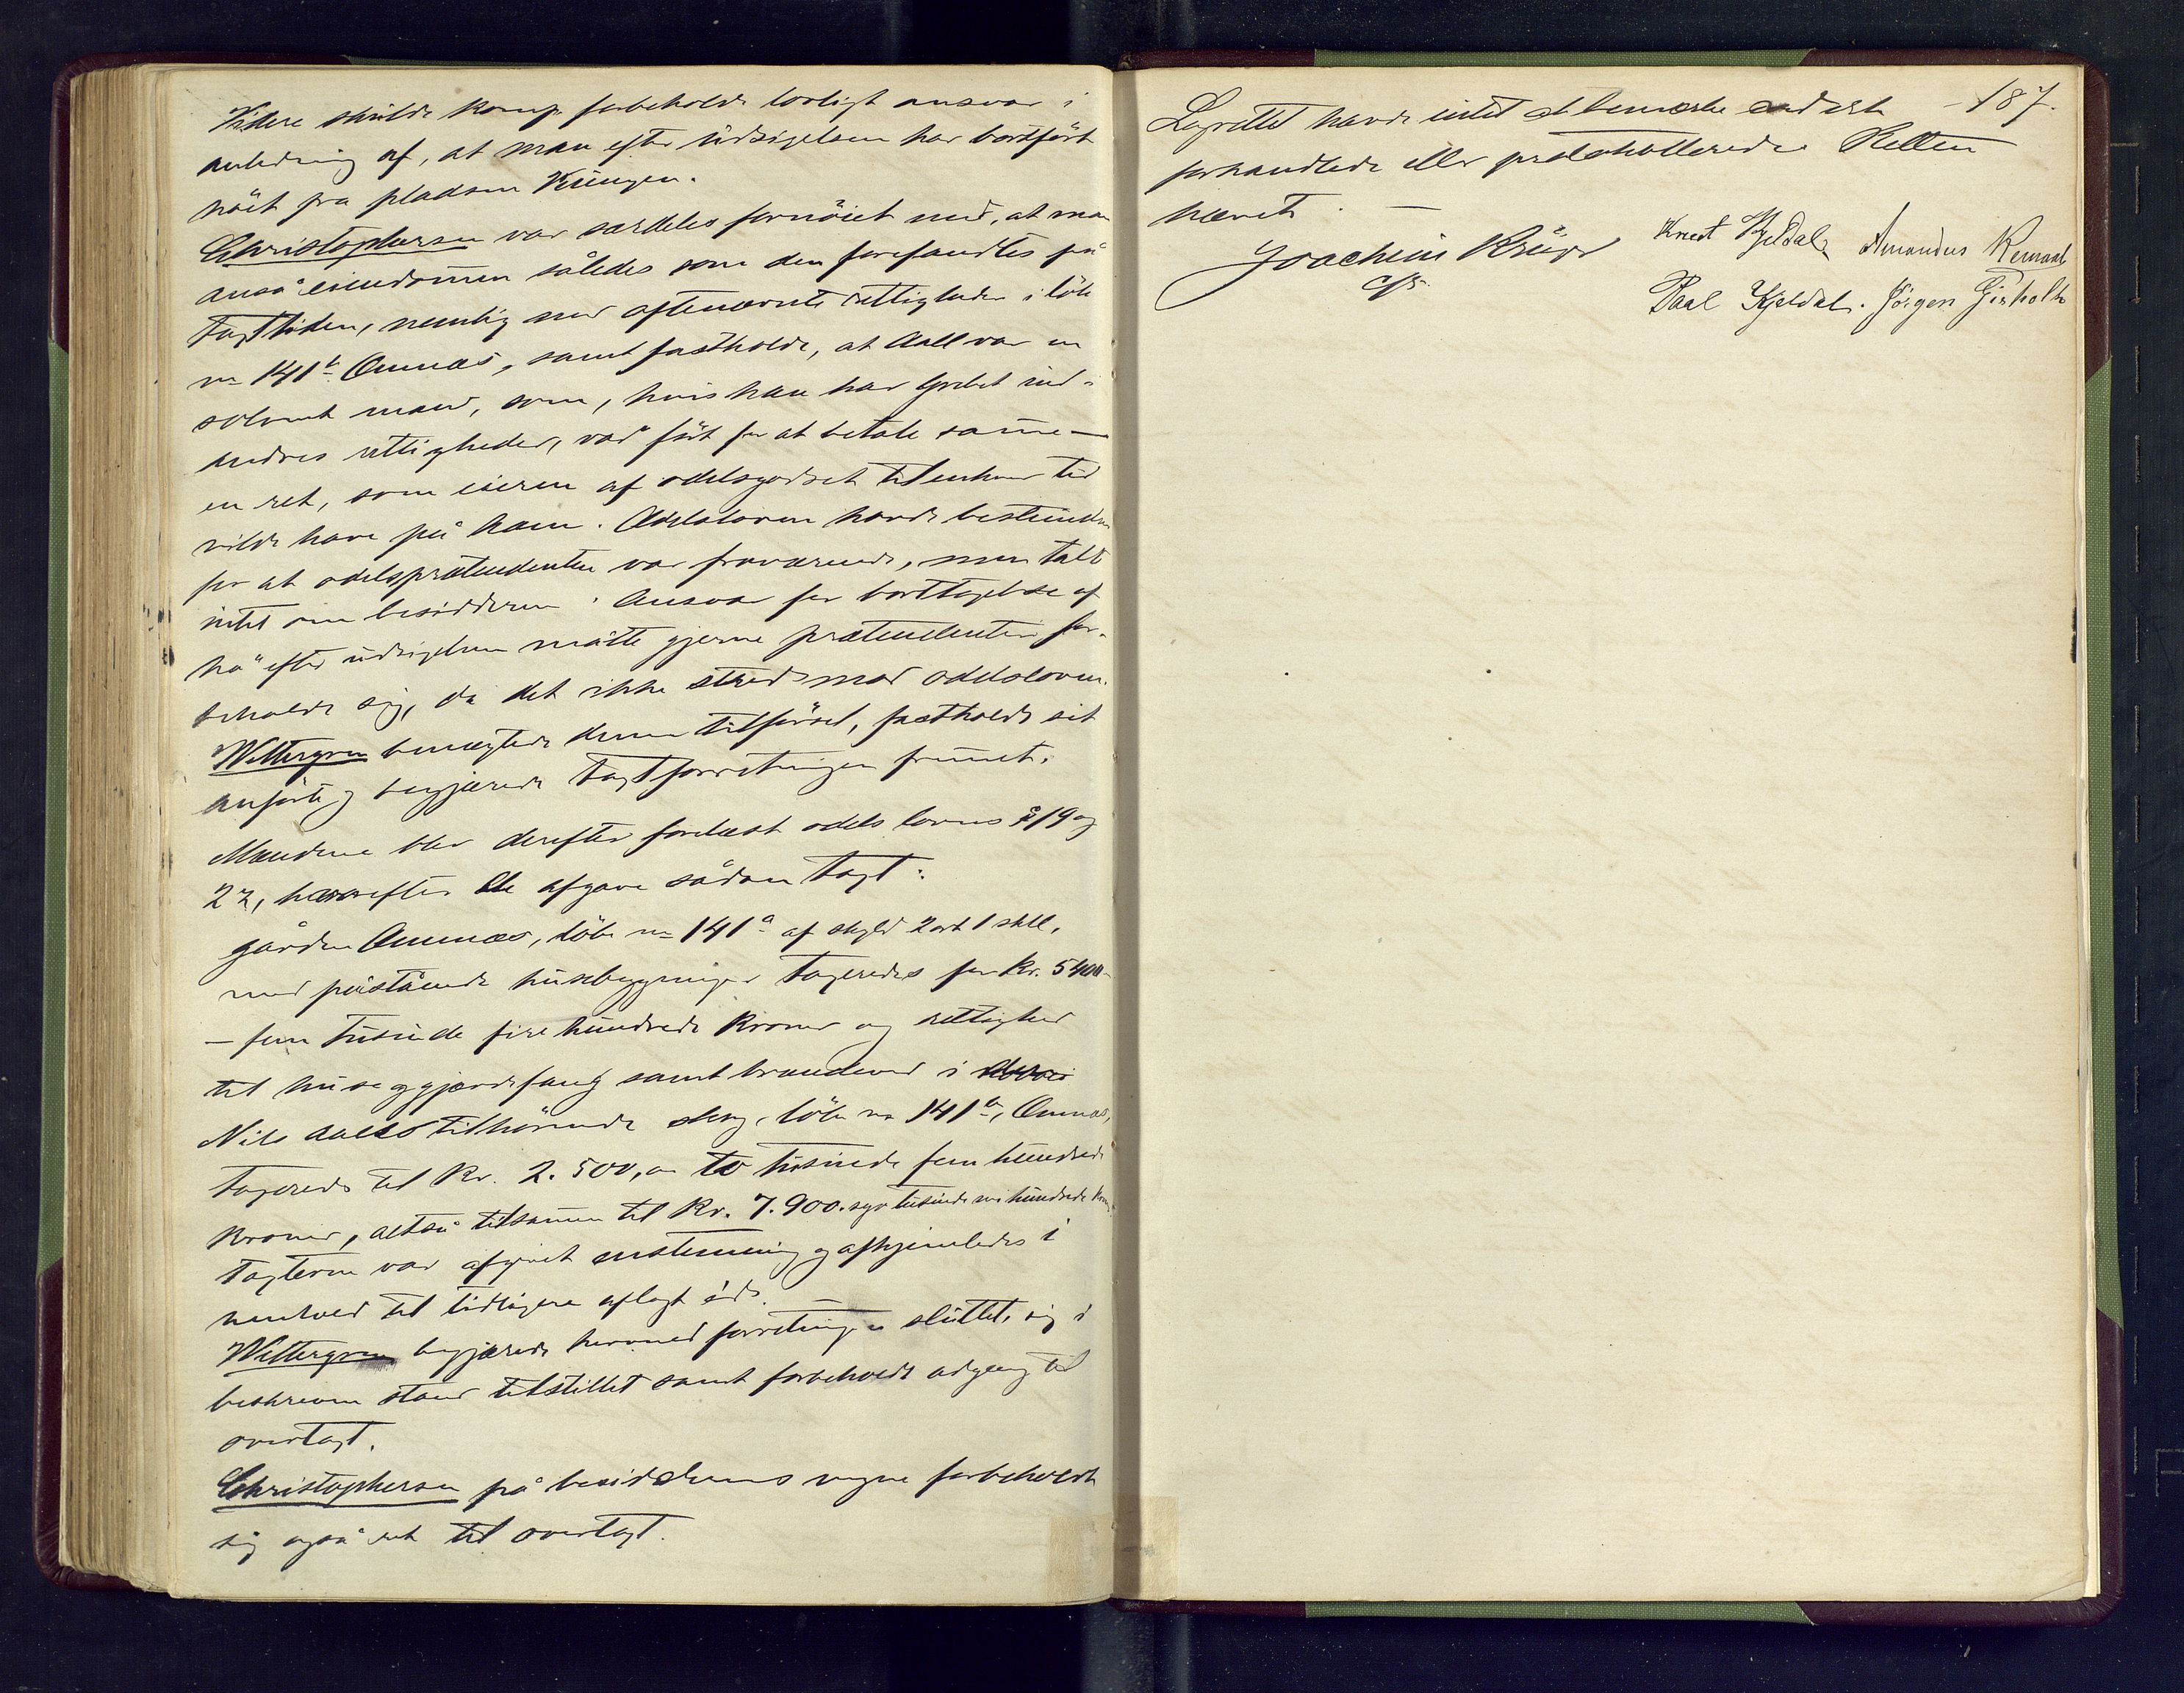 Videre skulde komp. forbeholde lovligt ansvar i
anledning af, at man efter údsigelsen har bortfört
höet fra pladsen Kúngen.
Christophersen var særdeles fornöiet med, at man
anså eiendommen således som den forefandtes på
taxttiden, nemlig med oftenævnte rettigheder i löbe
no 141b Omnæs, samt fastholdt, at Aall var en
solvent mand, som, hvis han har grebet ind i
andres rettigheder, var fört for at betale samme —
en ret, som eieren af odelsgodset til enhver tid
vilde have på ham. Odelsloven havde bestemmelser
for at odelsprætendenten var fraværende, men talte
intet om besidderen. Ansvar for borttagelse af
hö efter údsigelsen måtte gjerne prætendenten for-
beholde sig, da det ikke stred mod odelsloven.
Wettergren benægtede denne tilförsel, fastholdt sit
anförte og begjærede taxtforretningen fremmet.
Mændene blev derefter forelæst odelslovens § 19 og
22, hvorefter de afgave sådan taxt:
gården Omnæs, löbe no 141a af skyld 2 ort 1 skll,
med påstående húsebygninger taxeredes for kr. 5400
— fem túsinde fire húndrede kroner og rettighed
til húse og gjærdefang samt brændeved i
Nils Aall tilhörende skog, löbe no 141b, Omnæs,
taxeredes til kr. 2.500, to túsinde fem húndrede
kroner, altså tilsammen til kr. 7.900. syv túsinde ni húndrede kroner
Taxten var afgivet enstemmig og afhjemledes i
henhold til tidligere aflagt éd. —
Wettergren begjærede hermed forretningen slúttet, sig i
beskreven stand tilstillet samt forbeholdt adgang til
overtaxt.
Christophersen på besidderens vegne forbeholdt
sig også ret til overtaxt.
187.
Lagrettet havde intet at bemærke ved det
forhandlede eller protokollerede. Retten
hævet. —
Joachim Krüger
cst.
Knut Kjeldal. Amandus Remaal
Paal Kjeldal. Jörgen Gisholt